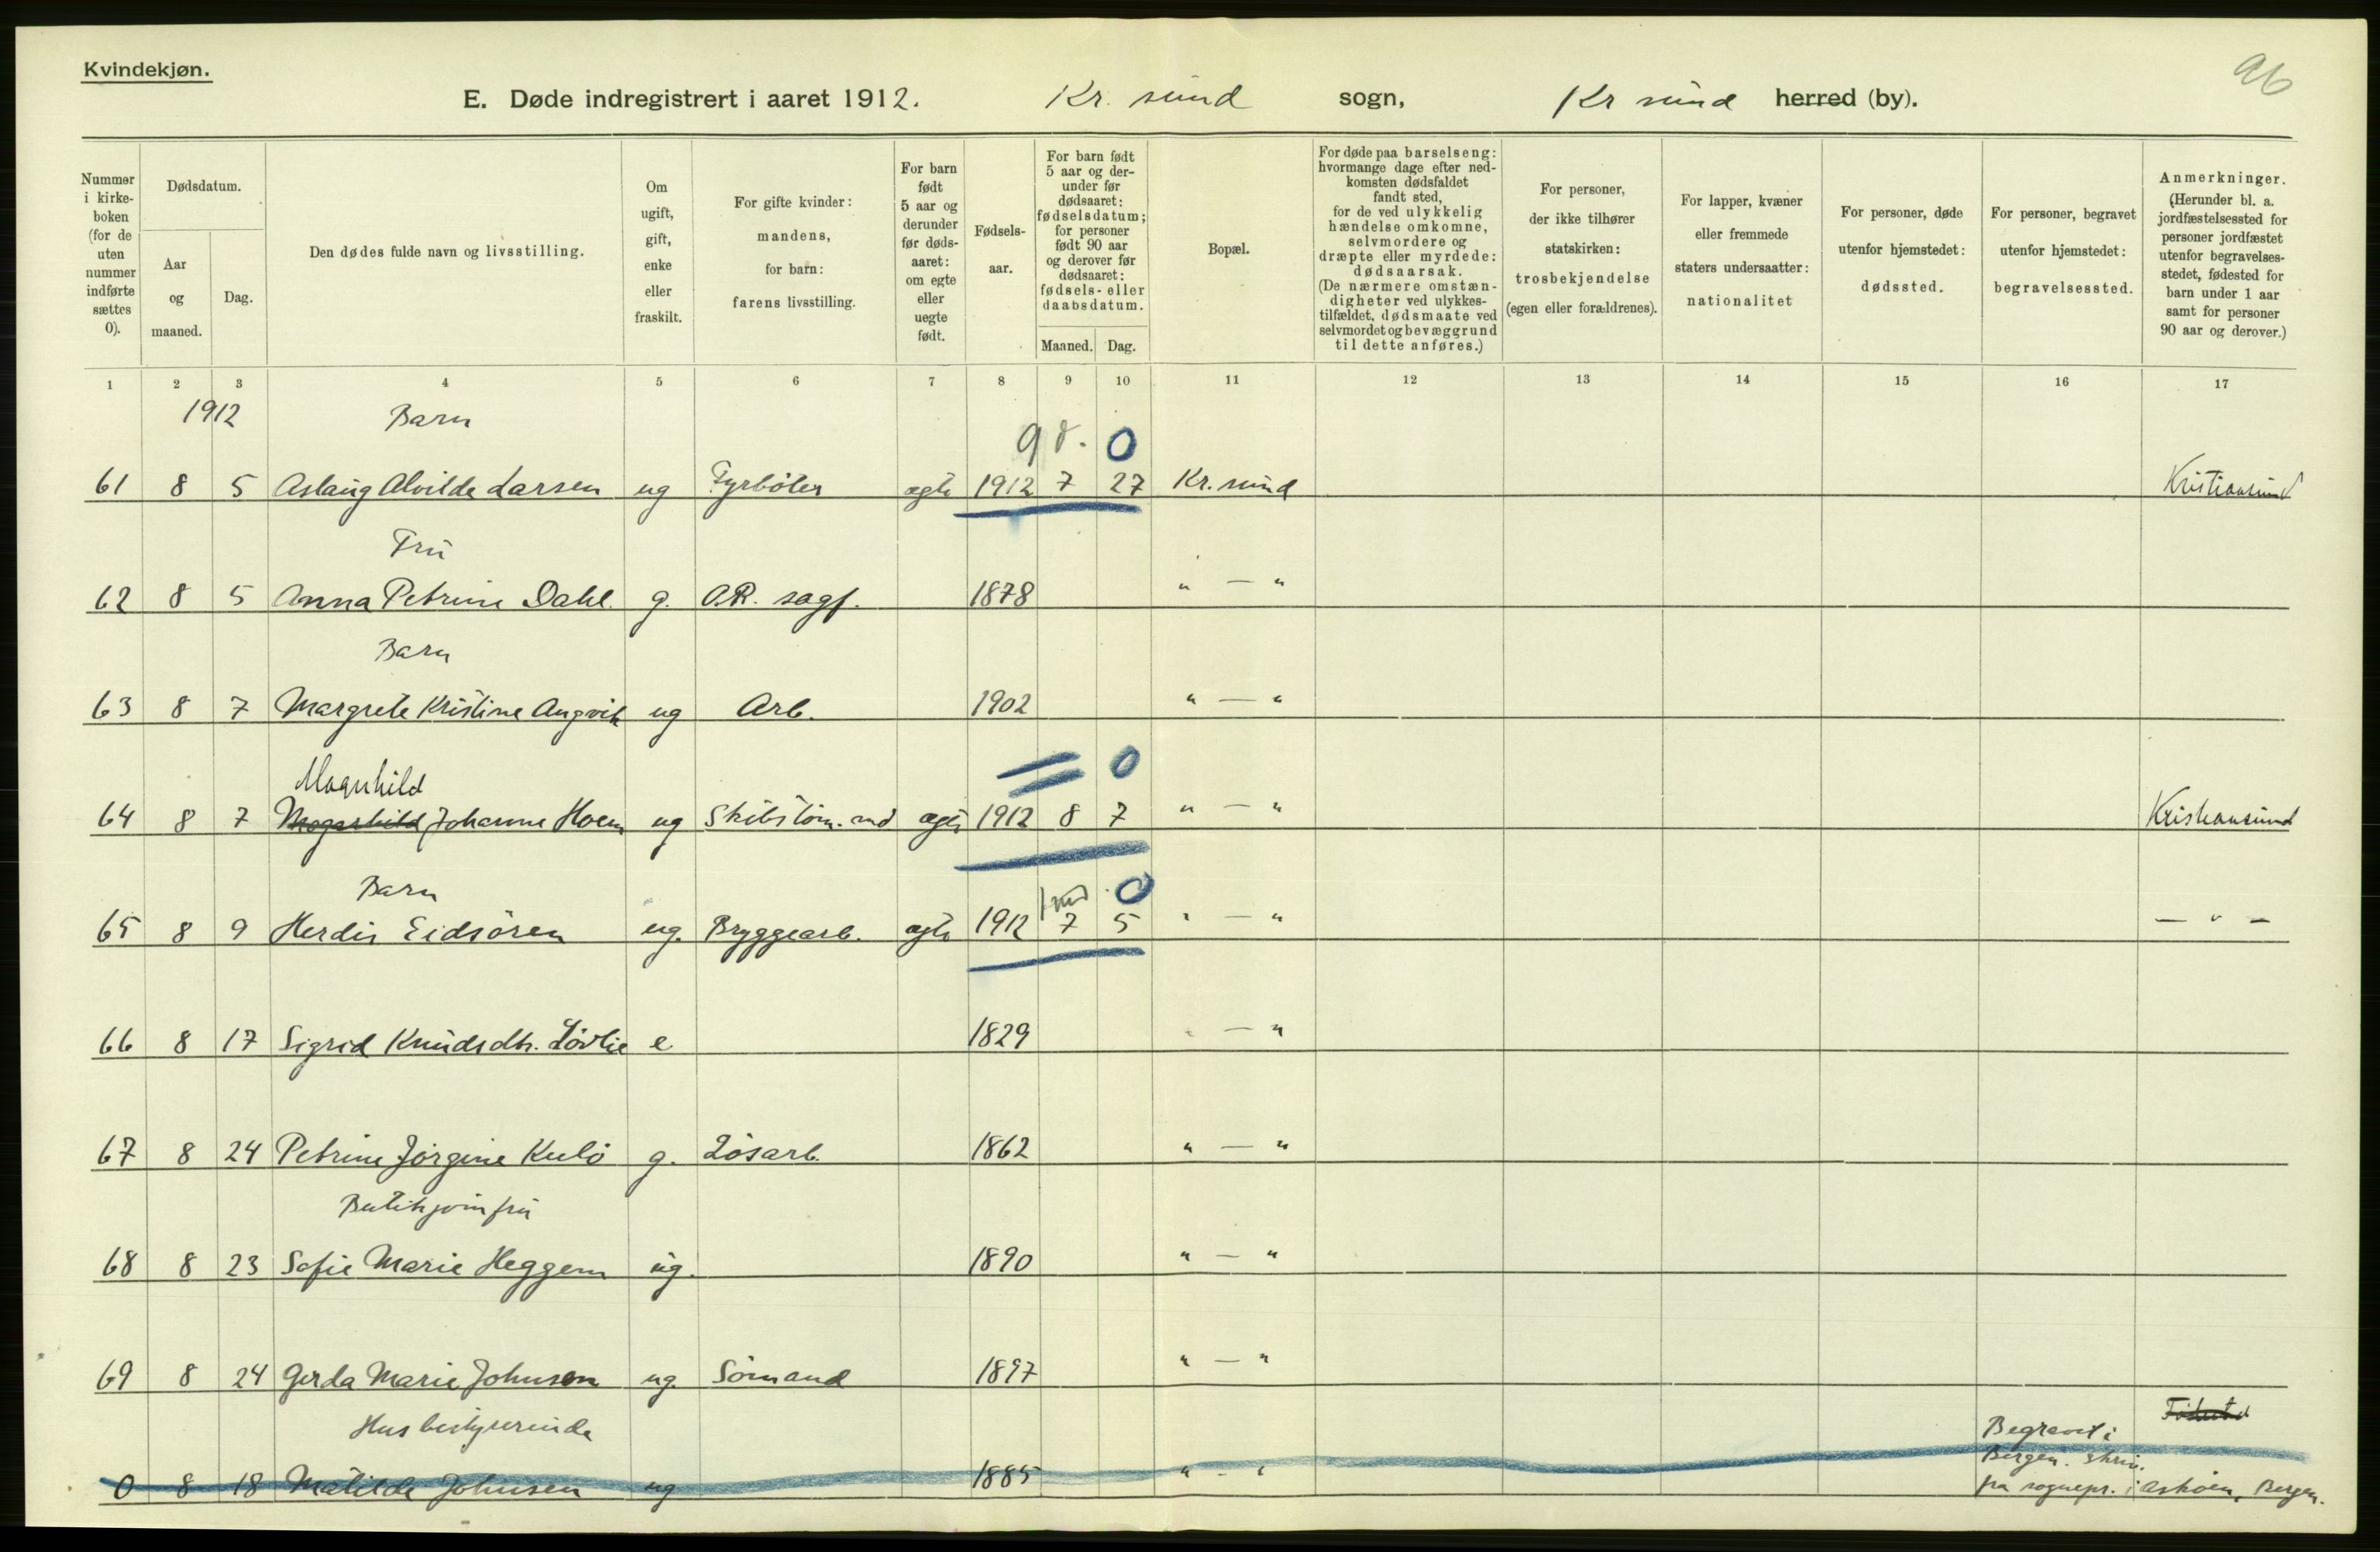 Kvindekjøn.
96
E. Døde indregistrert i aaret 1912. Kr. sund sogn, Kr sund herred (by).
Nummer i kirke- boken (for de uten nummer indførte sættes 0).
Dødsdatum.
Aar og maaned.
Dag.
Den dødes fulde navn og livsstilling.
Om ugift, gift, enke eller fraskilt.
For gifte kvinder: mandens, for barn: farens livsstilling.
For barn født 5 aar og derunder før døds- aaret: om egte eller uegte født.
Fødsels- aar.
For barn født 5 aar og der- under før dødsaaret: fødselsdatum; for personer født 90 aar og derover før dødsaaret: fødsels- eller daabsdatum.
Maaned. Dag.
Bopæl.
For døde paa barselseng: hvormange dage efter ned- komsten dødsfaldet fandt sted, for de ved ulykkelig hændelse omkomne, selvmordere og dræpte eller myrdede: dødsaarsak. (De nærmere omstæn- digheter ved ulykkes- tilfældet, dødsmaate ved selvmordet og bevæggrund til dette anføres.)
For personer, der ikke tilhører statskirken: trosbekjendelse (egen eller forældrenes).
For lapper, kvæner eller fremmede staters undersaatter: nationalitet
For personer, døde utenfor hjemstedet: dødssted.
For personer, begravet utenfor hjemstedet: begravelsessted.
Anmerkninger. (Herunder bl. a. jordfæstelsessted for personer jordfæstet utenfor begravelses- stedet, fødested for barn under 1 aar samt for personer 90 aar og derover.)
1 2 3 4 5 6 7 8 9 10 11 12 13 14 15 16 17
1912 Barn
9 d. 0
61 8 5 Aslaug Alvilde Larsen ug Fyrböter ægte 1912 7 27 Kr. sund Kristiansund
Fru
62 8 5 Anna Petrine Dahl. g. O.R. sagf. 1878 " — "
Barn
63 8 7 Margrete Kristine Angvik ug Arb. 1902 " — "
Magnhild 0
64 8 7 Magnhild Johanne Hoem ug Skibstöm. md ægte 1912 8 7 " — " Kristiansund
Barn 1 md 0
65 8 9 Herdis Eidsören ug. Bryggearb. ægte 1912 7 5 " — " — " —
66 8 17 Sigrid Knudsdtr. Lövlie e 1829 " — "
67 8 24 Petrine Jörgine Kulö g. Lösarb. 1862 " — "
Butikjomfru
68 8 23 Sofie Marie Heggem ug. 1890 " — "
69 8 24 Gerda Marie Johnsen ug. Sömand 1897 " — "
Husbestyrerinde
Begravet i
Bergen. skriv.
0 8 18 Matilde Johnsen ug 1885 " - " fra sognepr. i Asköen, Bergen.